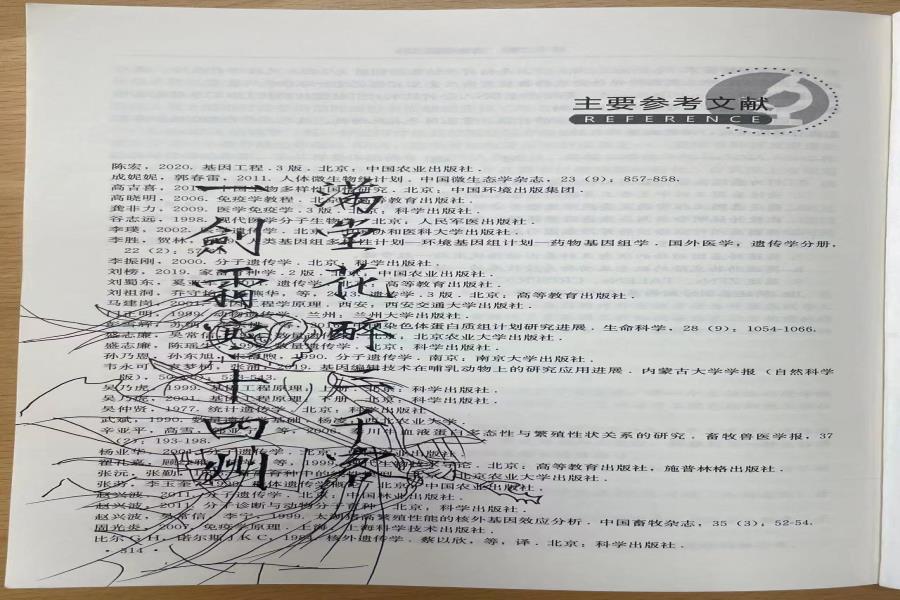 主要参考文献
REFERENCE
陈宏，2020. 基因工程. 3版. 北京：中国农业出版社.
成妮妮，郭春雷，2011. 人体微生物组计划. 中国微生态学杂志，23（9）：857-858.
高吉喜，201 中国生物多样性国情研究. 北京：中国环境出版集团.
高晓明，2006. 免疫学教程. 北京：高等教育出版社.
龚非力，2009. 医学免疫学. 3版. 北京：科学出版社.
谷志远，1998. 现代医学分子生物学. 北京：人民军医出版社.
李璞，2002. 医学遗传学. 北京：协和医科大学出版社.
李胜，贺林， 类基因组多样性计划—环境基因组计划—药物基因组学. 国外医学：遗传学分册，
22（2）：57
李振刚，2000. 分子遗传学. 北京：科学出版社.
刘榜，2019. 家畜育种学. 2版. 北京：中国农业出版社.
刘蜀东， 遗传学. 北京：高等教育出版社.
刘祖洞，乔守怡，吴燕华，等，2013. 遗传学. 3版. 北京：高等教育出版社.
马建岗，2001. 基因工程学原理. 西安：西安交通大学出版社.
门正明，1989. 动物遗传学. 兰州：兰州大学出版社.
染色体蛋白质组计划研究进展. 生命科学，28（9）：1054-1066.
盛志廉，吴常信， 数量遗传学. 北京：北京农业大学出版社.
盛志廉，陈瑶生， 数量遗传学. 北京：科学出版社.
孙乃恩，孙东旭，朱德煦，1990. 分子遗传学. 南京：南京大学出版社.
韦永可，袁梦树，张涌，2019. 基因编辑技术在哺乳动物上的研究应用进展. 内蒙古大学学报（自然科学
版），50 543.
吴乃虎，1999. 基因工程原理：上册. 北京：科学出版社.
吴乃虎，2001. 基因工程原理：下册. 北京：科学出版社.
吴仲贤，1977. 统计遗传学. 北京：科学出版社.
武斌，1990. 数量遗传学基础. 杨凌：西北农业大学.
辛亚平，高雪， 等，2006. 秦川牛血液蛋白多态性与繁殖性状关系的研究. 畜牧兽医学报，37
（2）：193-198.
杨业华，2001. 分子遗传学. 北京： 农业出版社.
翟礼嘉，顾红雅， 等，1999. 现代生物技术导论. 北京：高等教育出版社，施普林格出版社.
张沅，张勤， 育种中的 北京农业大学出版社.
张劳，李玉奎， 群体遗传学概 北京：中国农业出版社.
赵兴波，2011. 分子遗传学. 北京：中国林业出版社.
赵兴波，2011. 分子诊断与动物分子育种. 北京：科学出版社.
赵兴波，吴常信，李宁，1999. 太湖猪高繁殖性能的核外基因效应分析. 中国畜牧杂志，35（3）：52-54.
周光炎，2007. 免疫学原理. 上海：上海科学技术出版社.
比尔 G H，诺尔斯 J K C，1984. 核外遗传学. 蔡以欣，等，译. 北京：科学出版社.
· 314 ·
满堂花醉三千客
一剑霜寒十四州